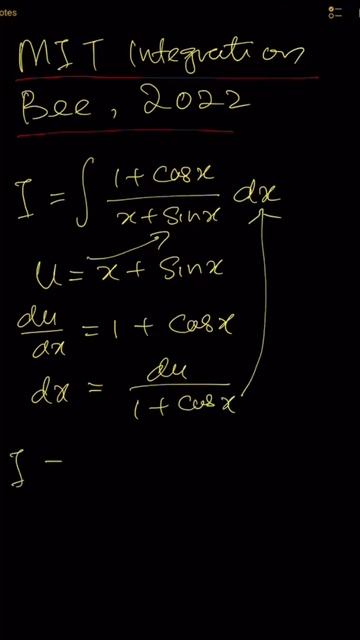 otes
MIT Integration
Bee, 2022
I = ∫ (1 + cosx)/(x + sinx) dx
u = x + sinx
du/dx = 1 + cosx
dx = du/(1 + cosx)
I =